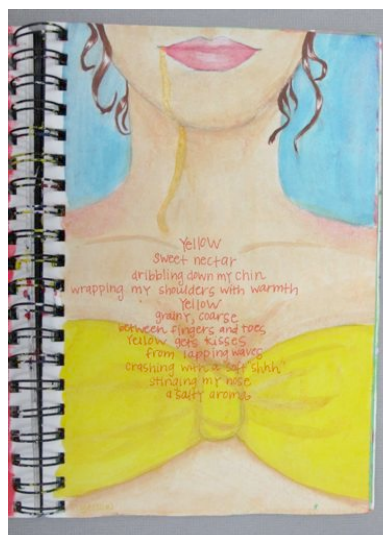 Yellow
sweet nectar
dribbling down my chin
wrapping my shoulders with warmth
Yellow
grainy, coarse
between fingers and toes
Yellow gets kisses
from lapping waves
crashing with a "soft shhh"
stinging my nose
a salty aroma